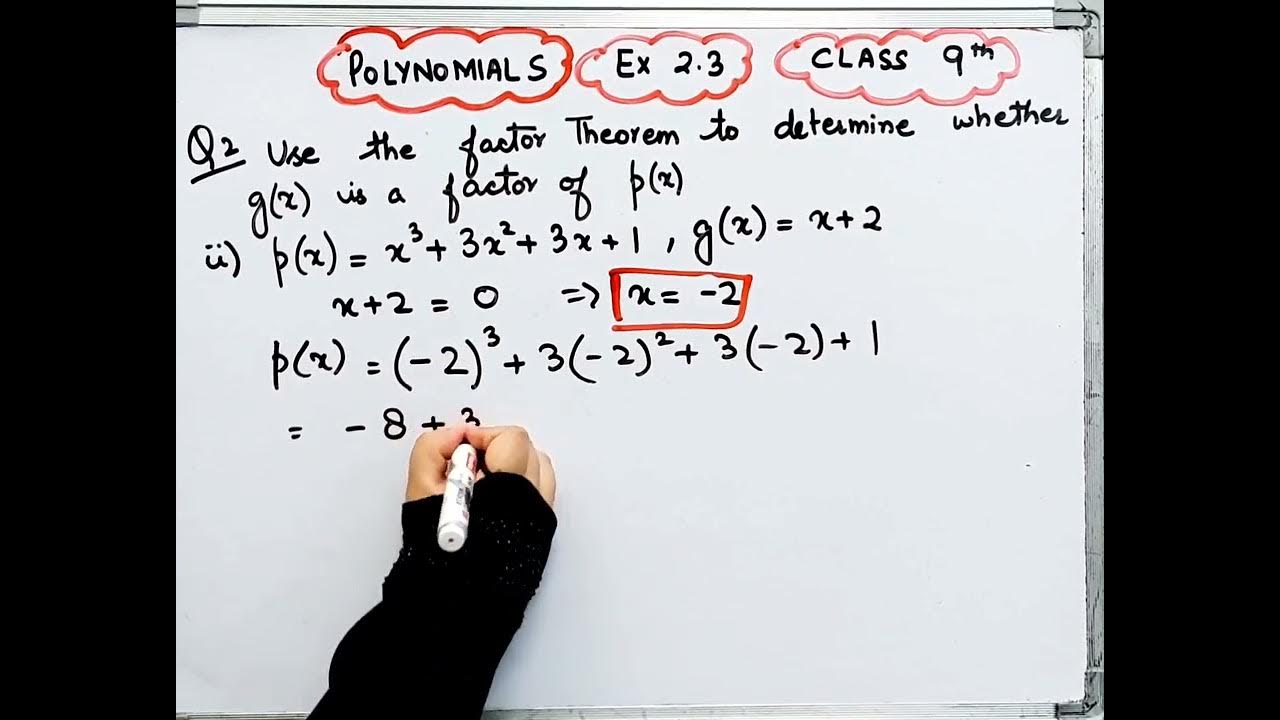 POLYNOMIALS Ex 2.3 CLASS 9th
Q2 Use the factor Theorem to determine whether
g(x) is a factor of p(x)
ii) p(x) = x³ + 3x² + 3x + 1 , g(x) = x + 2
x + 2 = 0 => x = -2
p(x) = (-2)³ + 3(-2)² + 3(-2) + 1
= - 8 + 3